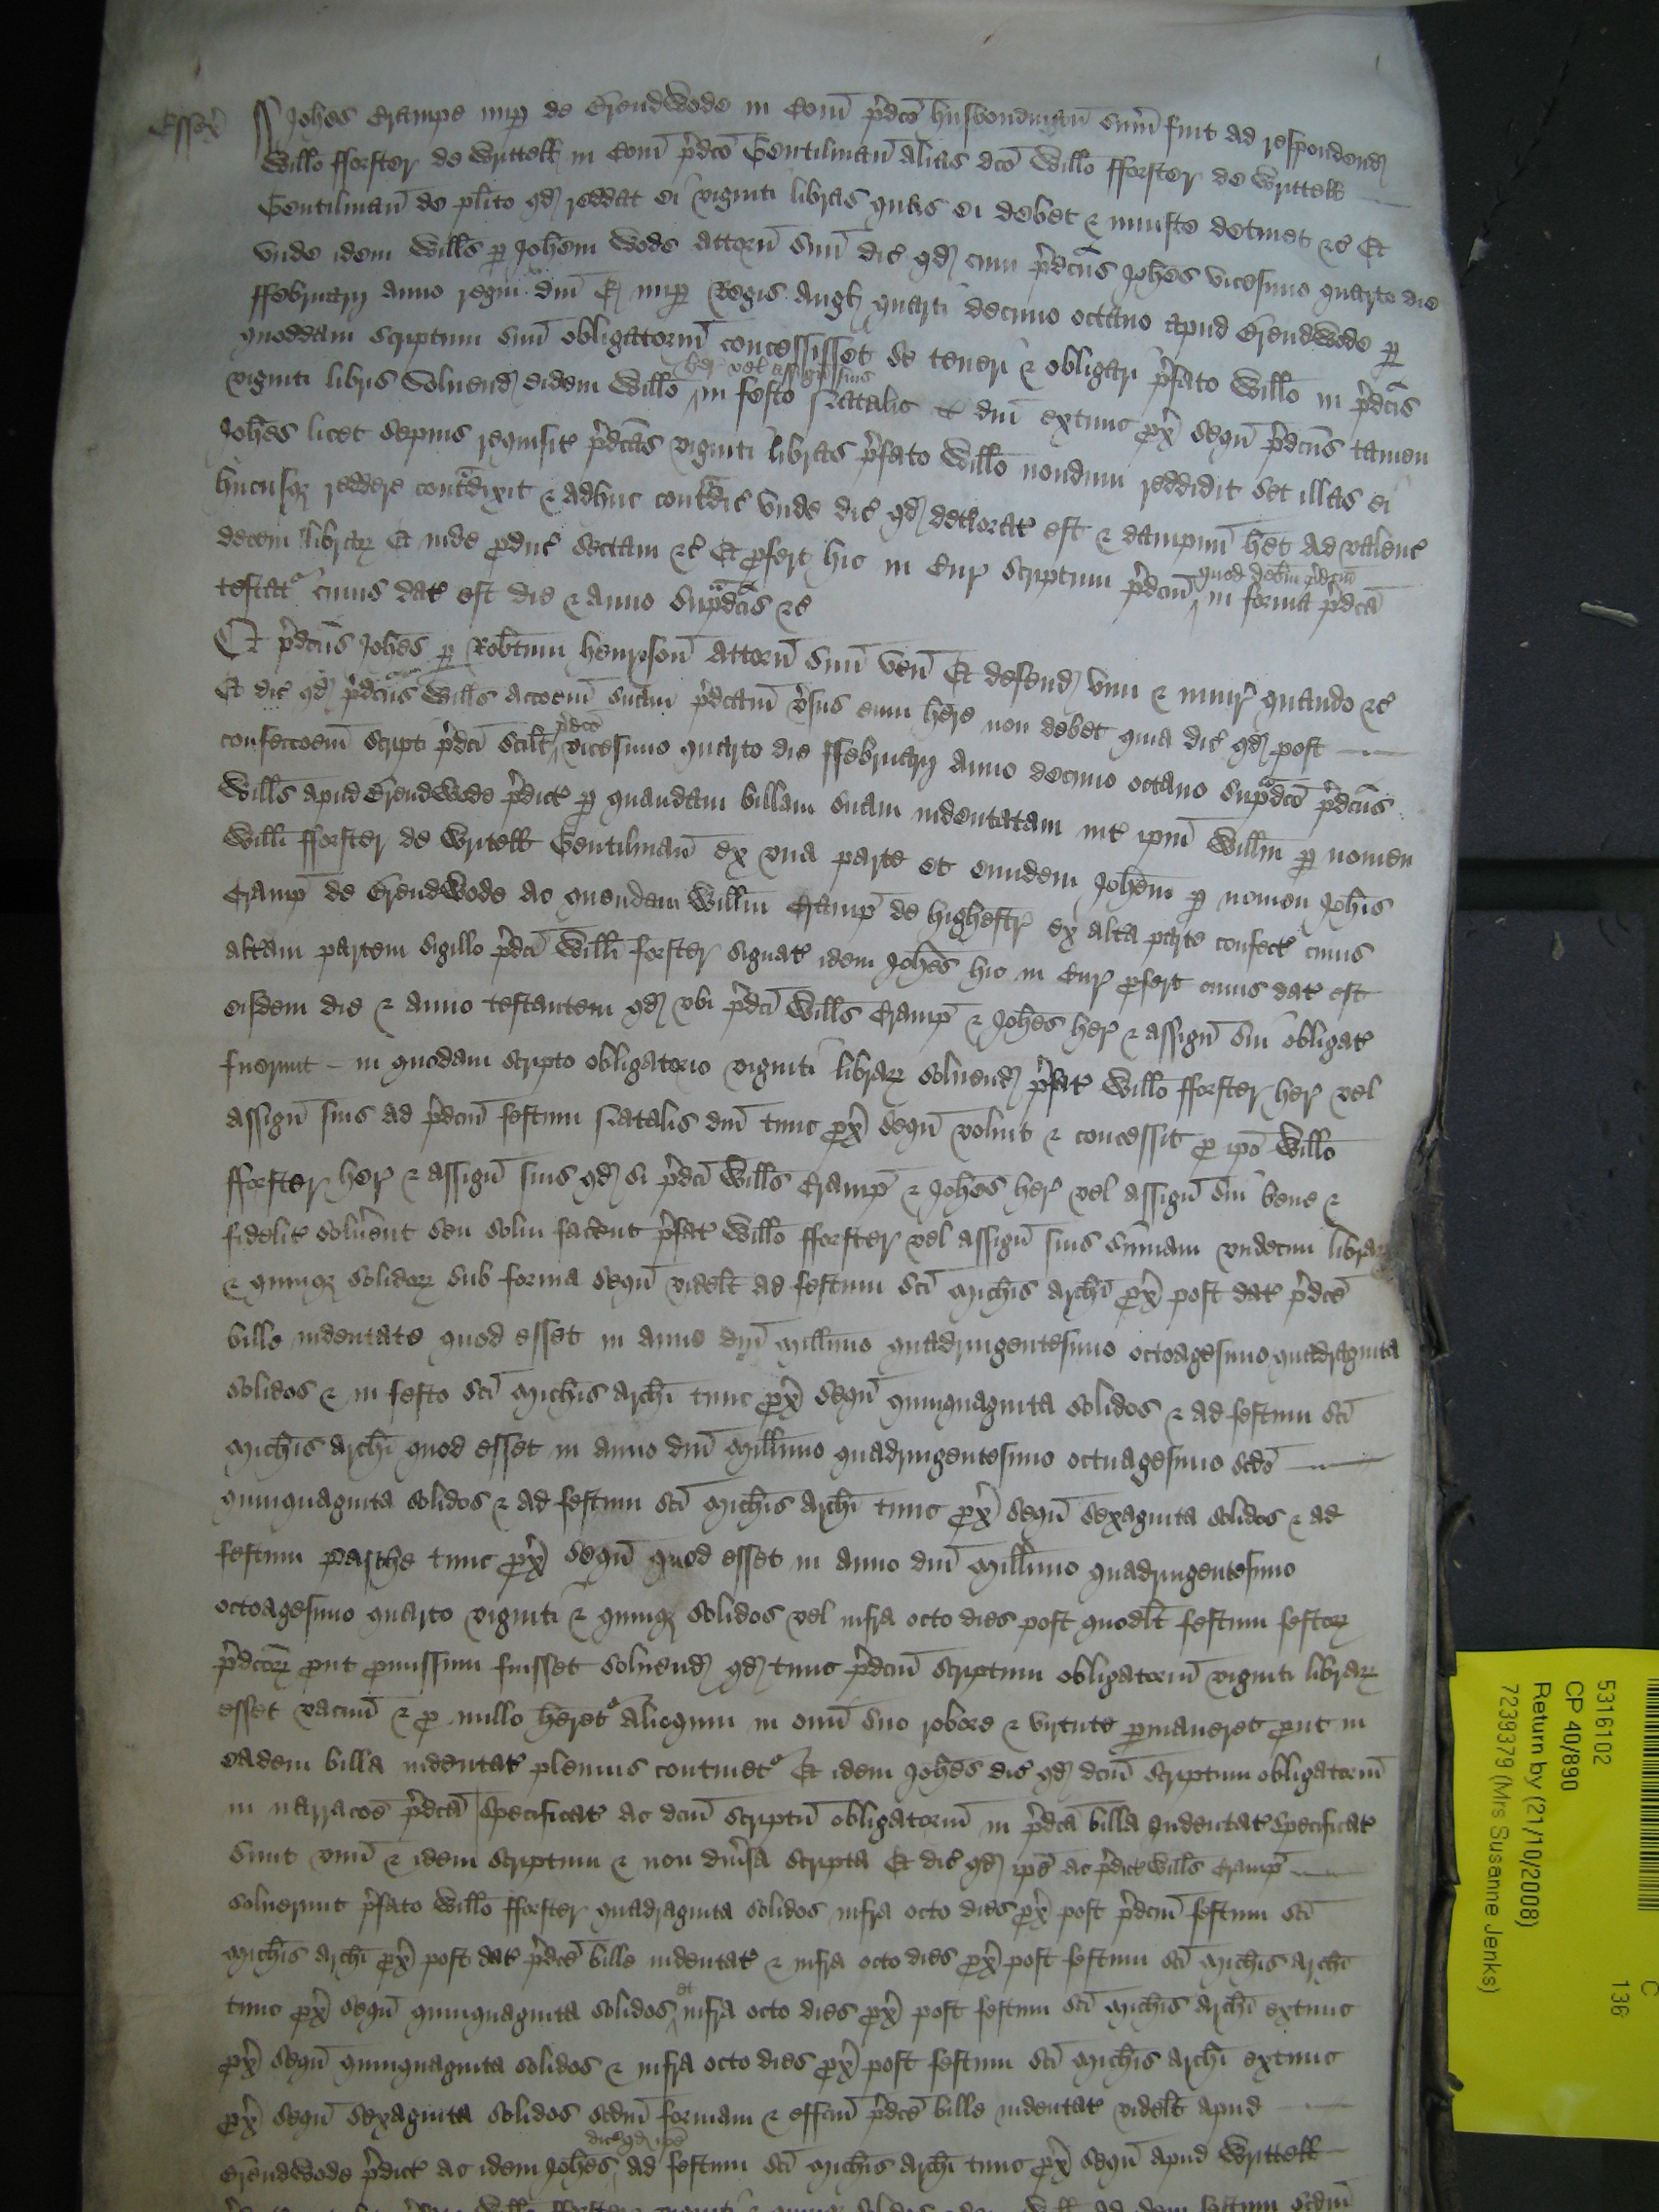 Essex̃ Joħes Crampe nup de Brendwode in Com̃ p̃dco husbondman sum̃ fuit ad respondend
Willo fforster de Writtell in Com̃ p̃dco Gentilman alias dco Willo fforster de Writtell
Gentilman de plito qd reddat ei viginti libras quas ei debet & iniuste detinet &c Et
vnde idem Wills p Joħem Wode attorñ suũ dic̃ qd cum p̃dcus Joħes vicesimo quarto die
ffebruarij anno regni dñi E nup Regis Angl quarti decimo octauo apud Brendwode p
quoddam scriptum suũ obligatoriũ concessisset se teneri & obligari p̃fato Willo in p̃dcis
viginti libris soluend eidem Willo her vel assign suis in festo Natalis dñi extunc px̃ sequñ p̃dcus tamen
Joħes licet sepius requisit p̃dcas viginti libras p̃fato Willo nondum reddidit set illas ei
hucusq reddere contdixit & adhuc contdic̃ vnde dic̃ qd deteriorat est & dampnũ het ad valenc̃
decem librar Et inde pduc̃ sectam &c Et pfert hic in Cur scriptum p̃dcũ quod debitũ p̃dcũ in forma p̃dca
testat cuius dat est die & anno sup̃dcis &c
Et p̃dcus Joħes p Robtum Henrison attorñ suũ veñ Et defend vim & iniur quando &c
Et dic̃ qd p̃dcus Wills accoem̃ suam p̃dcam v̾sus eum hẽre non debet quia dic̃ qd post
confeccoem̃ scripti p̃dci scilt p̃dco vicesimo quarto die ffebruarij anno decimo octauo sup̃dco p̃dcus
Wills apud Brendwode p̃dict p quandam billam suam indentatam int ipm̃ Willm p nomen
Willi fforster de Writell Gentilman ex vna parte et eundem Joħem p nomen Joħis
Cramp de Brendwode ac quendam Willm Cramp de Highestr ex alta parte confect cuius
altam partem sigillo p̃dci Willi forster signat idem Joħes hic in Cur pfert cuius dat est
eisdem die & anno testantem qd vbi p̃dci Wills Cramp & Joħes her & assign sui obligat
fuerunt in quodam scripto obligatorio viginti librar soluend p̃fat Willo fforster her vel
assign suis ad p̃dcũ festum Natalis dñi tunc px̃ sequñ voluit & concessit p ipo Willo
fforster her & assign suis qd si p̃dci Wills Cramp & Joħes her vel assign sui bene &
fidelit soluerent seu solui facent p̃fat Willo fforster vel assign suis sum̃am vndecim librar
& quinq solidor sub forma sequñ videlt ad festum sci Mich̃is archi px̃ post dat p̃dce
bille indentate quod esset in anno dñi millimo quadringentesimo octoagesimo quadraginta
solidos & in festo sci Mich̃is archi tunc px̃ sequñ quinquaginta solidos & ad festum sci
Mich̃is archi quod esset in anno dñi millimo quadringentesimo octuagesimo scdo
quinquaginta solidos & ad festum sci Mich̃is archi tunc px̃ sequñ sexaginta solidos & ad
festum pasche tunc px̃ sequñ quod esset in anno dñi millimo quadringentesimo
octoagesimo quarto viginti & quinq solidos vel infra octo dies post quodlt festum festor
p̃dcor put pmissum fuisset soluend qd tunc p̃dcũ scriptum obligatoriũ viginti librar
esset vacuũ & p nullo heret alioquin in om̃i suo robore & virtute pmaneret put in
eadem billa indentat plenius continet Et idem Joħes dic̃ qd dcũ scriptum obligatoriũ
in narracoe p̃dca specificat ac dcũ scriptũ obligatoriũ in p̃dca billa indentat specificat
sunt vnũ & idem scriptum & non diũsa scripta Et dic̃ qd ipe ac p̃dict Wills Cramp
soluerunt p̃fato Willo fforster quadraginta solidos infra octo dies px̃ post p̃dcũ festum sci
Mich̃is archi px̃ post dat p̃dce bille indentat & infra octo dies px̃ post festum sci Mich̃is archi
tunc px̃ sequñ quinquaginta solidos et infra octo dies px̃ post festum sci Mich̃is archi extunc
px̃ sequñ quinquaginta solidos & infra octo dies px̃ post festum sci Mich̃is archi extunc
px̃ sequñ sexaginta solidos scdm formam & effcũ p̃dce bille indentat videlt apud
Brendwode p̃dict ac idem Joħes dic̃ qd ipe ad festum sci Mich̃is archi tunc px̃ sequñ apud Writtell
5316102
CP 40/890
Return by (21/10/2008)
7239379 (Mrs Susanne Jenks)
C
136